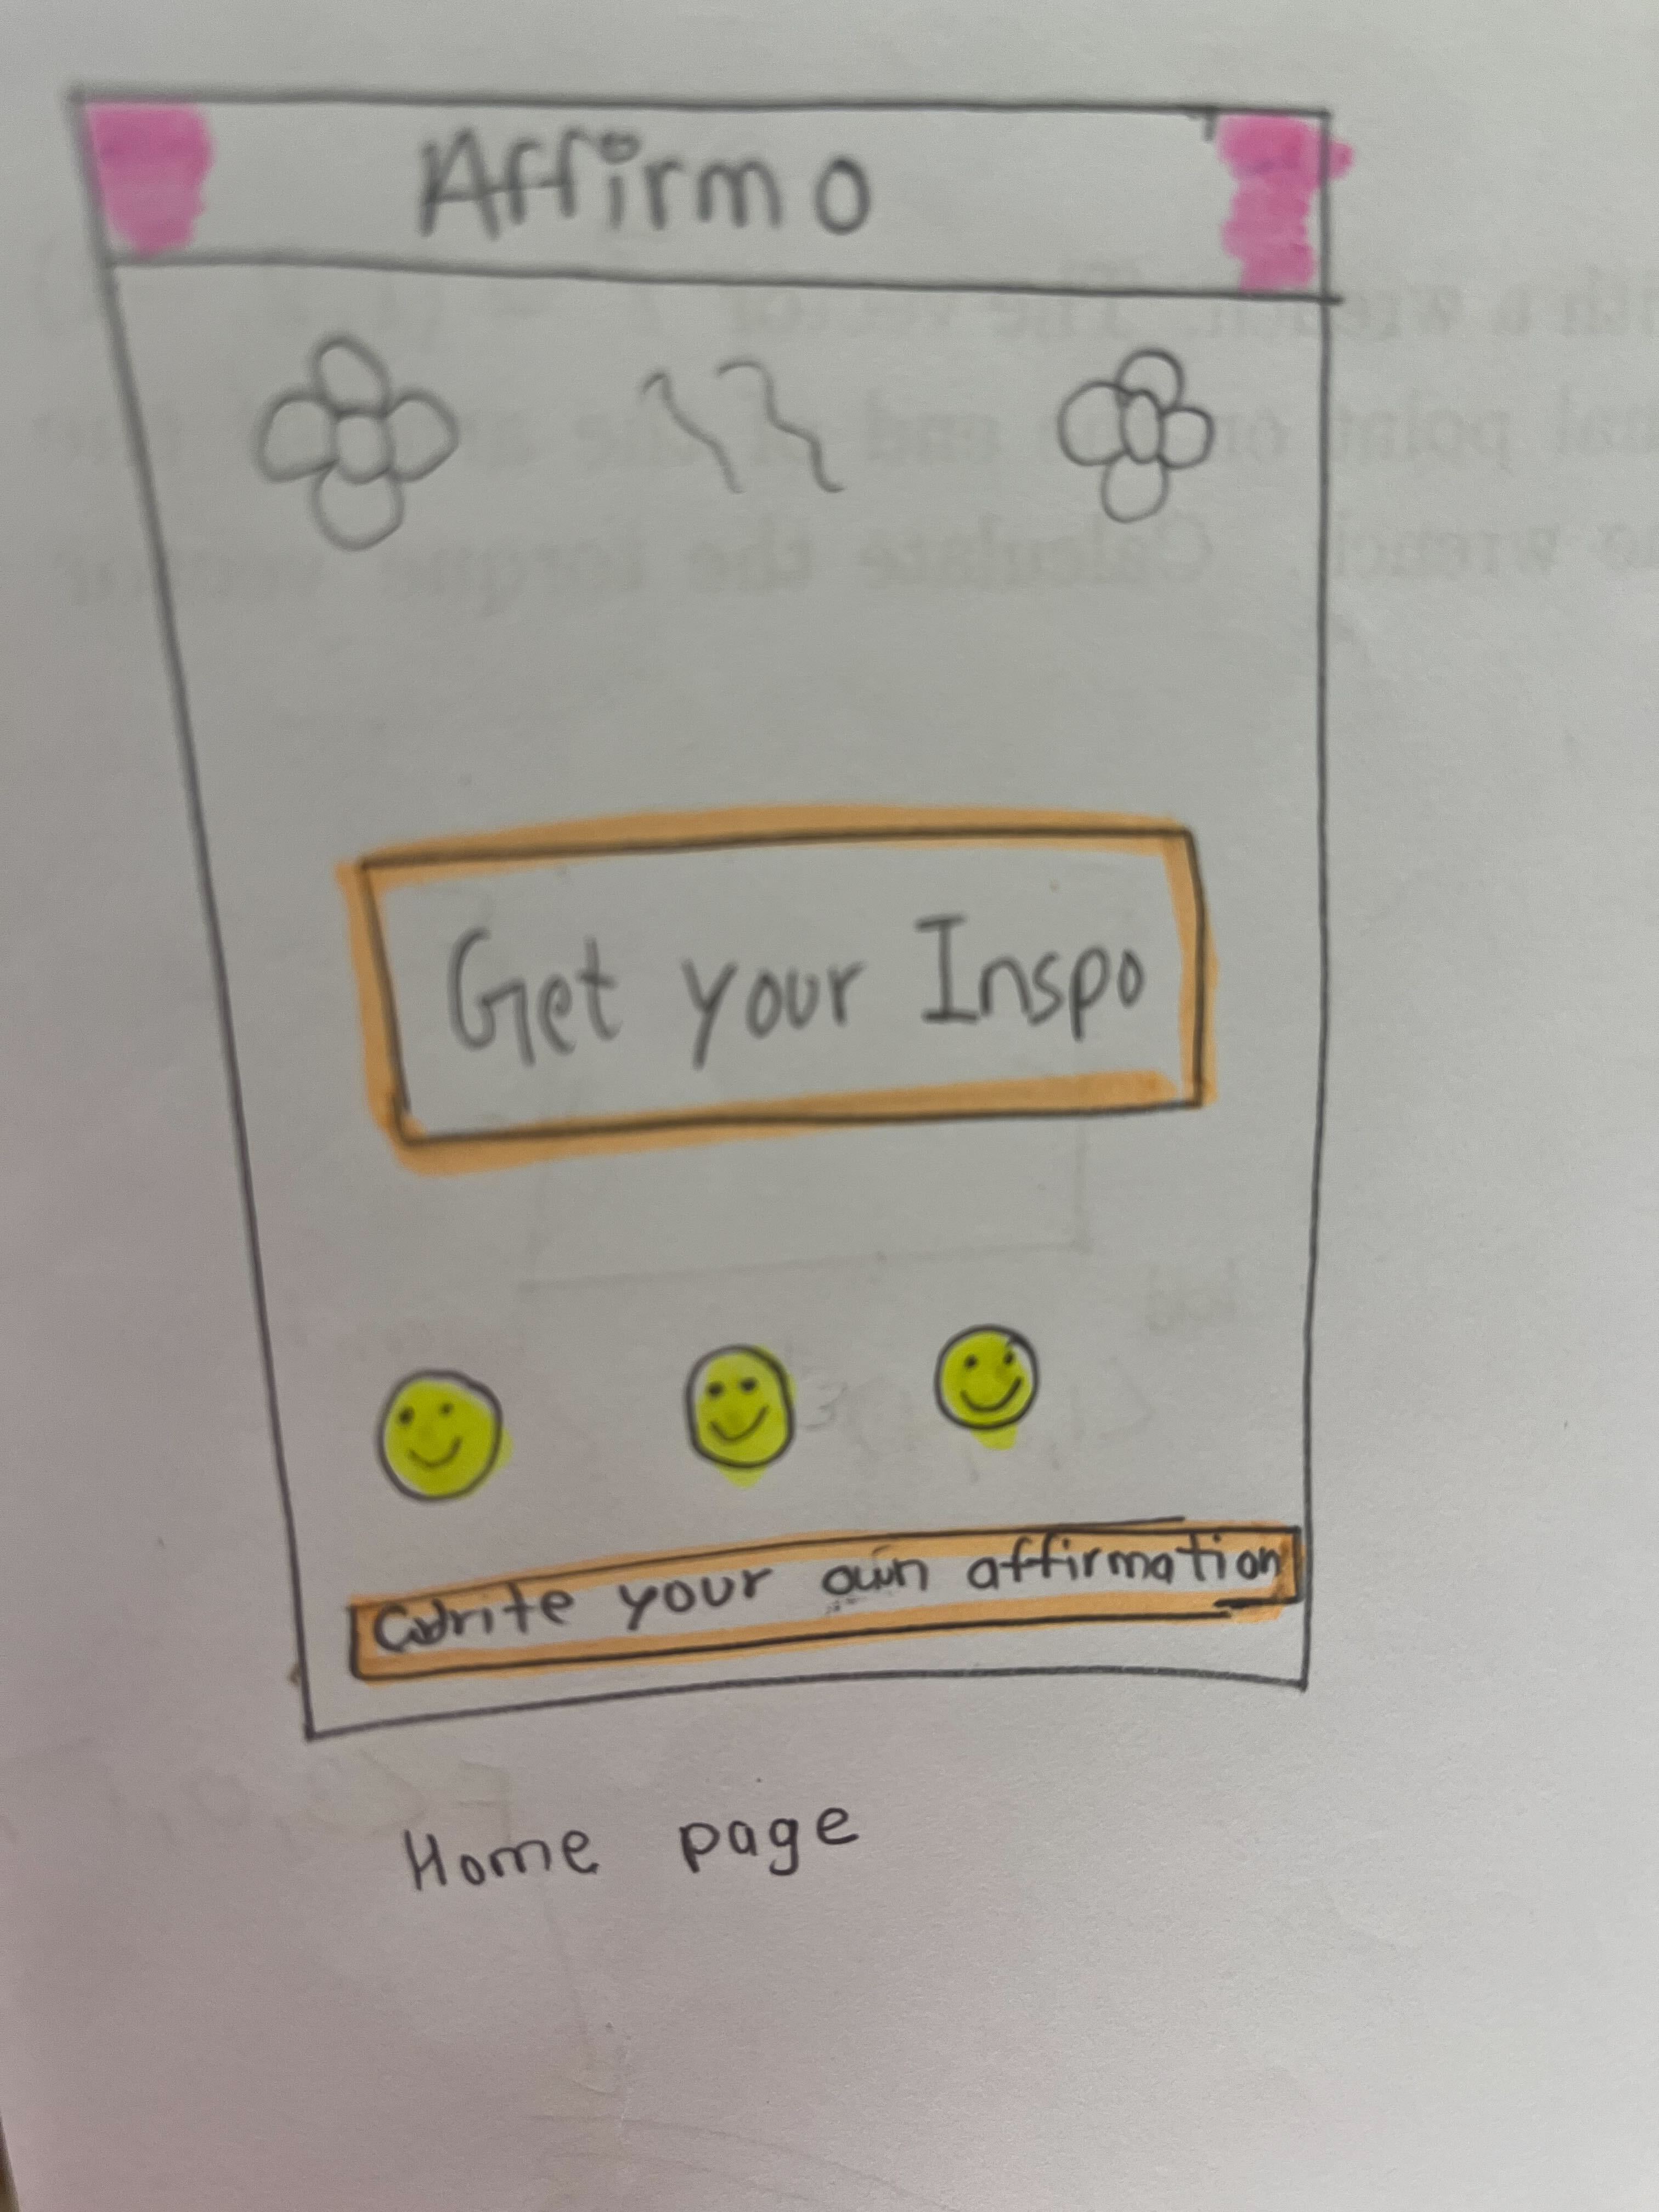 Affirmo
Get your Inspo
Write your own affirmation
Home page